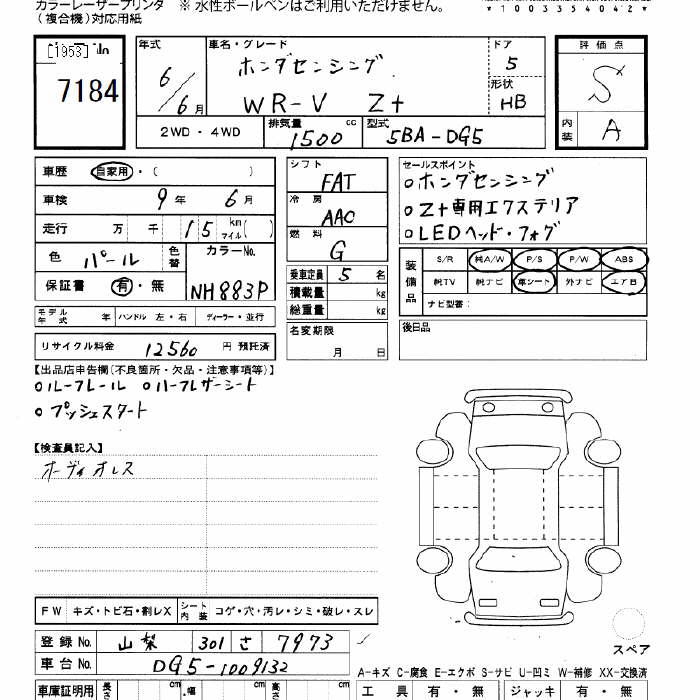 カラーレーザープリンタ ※ 水性ボールペンはご利用いただけません。
(複合機)対応用紙
*1003354042*
[1953]
7184
年式 6/6月
車名・グレード ホンダセンシング
WR-V Z+
ドア 5
形状 HB
評価点 S
内装 A
2WD・4WD 排気量 1500 cc 型式 5BA-DG5
車歴 自家用・( )
車検 9年 6月
走行 万 千 15 km マイル( )
色 パール 色替 カラーNo. NH883P
保証書 有・無
モデル年式 年 ハンドル 左・右 ディーラー・並行
リサイクル料金 12560 円 預託済
シフト FAT
冷房 AAC
燃料 G
乗車定員 5 名
積載量 kg
総重量 kg
名変期限 月 日
セールスポイント
○ホンダセンシング
○Z+専用エクステリア
○LEDヘッド・フォグ
装備品 S/R 純A/W P/S P/W ABS
純TV 純ナビ 革シート 外ナビ エアB
ナビ型番:
後日品
【出品店申告欄(不良箇所・欠品・注意事項等)】
○ルーフレール ○ハーフレザーシート
○プッシュスタート
【検査員記入】
オーディオレス
FW キズ・トビ石・割レX シート内装 コゲ・穴・汚レ・シミ・破レ・スレ
登録No. 山梨 301 さ 7973
車台No. DG5-1009132
スペア
A-キズ C-腐食 E-エクボ S-サビ U-凹ミ W-補修 XX-交換済
車庫証明用 長さ cm ・幅 cm 高さ cm
工具 有・無 ジャッキ 有・無